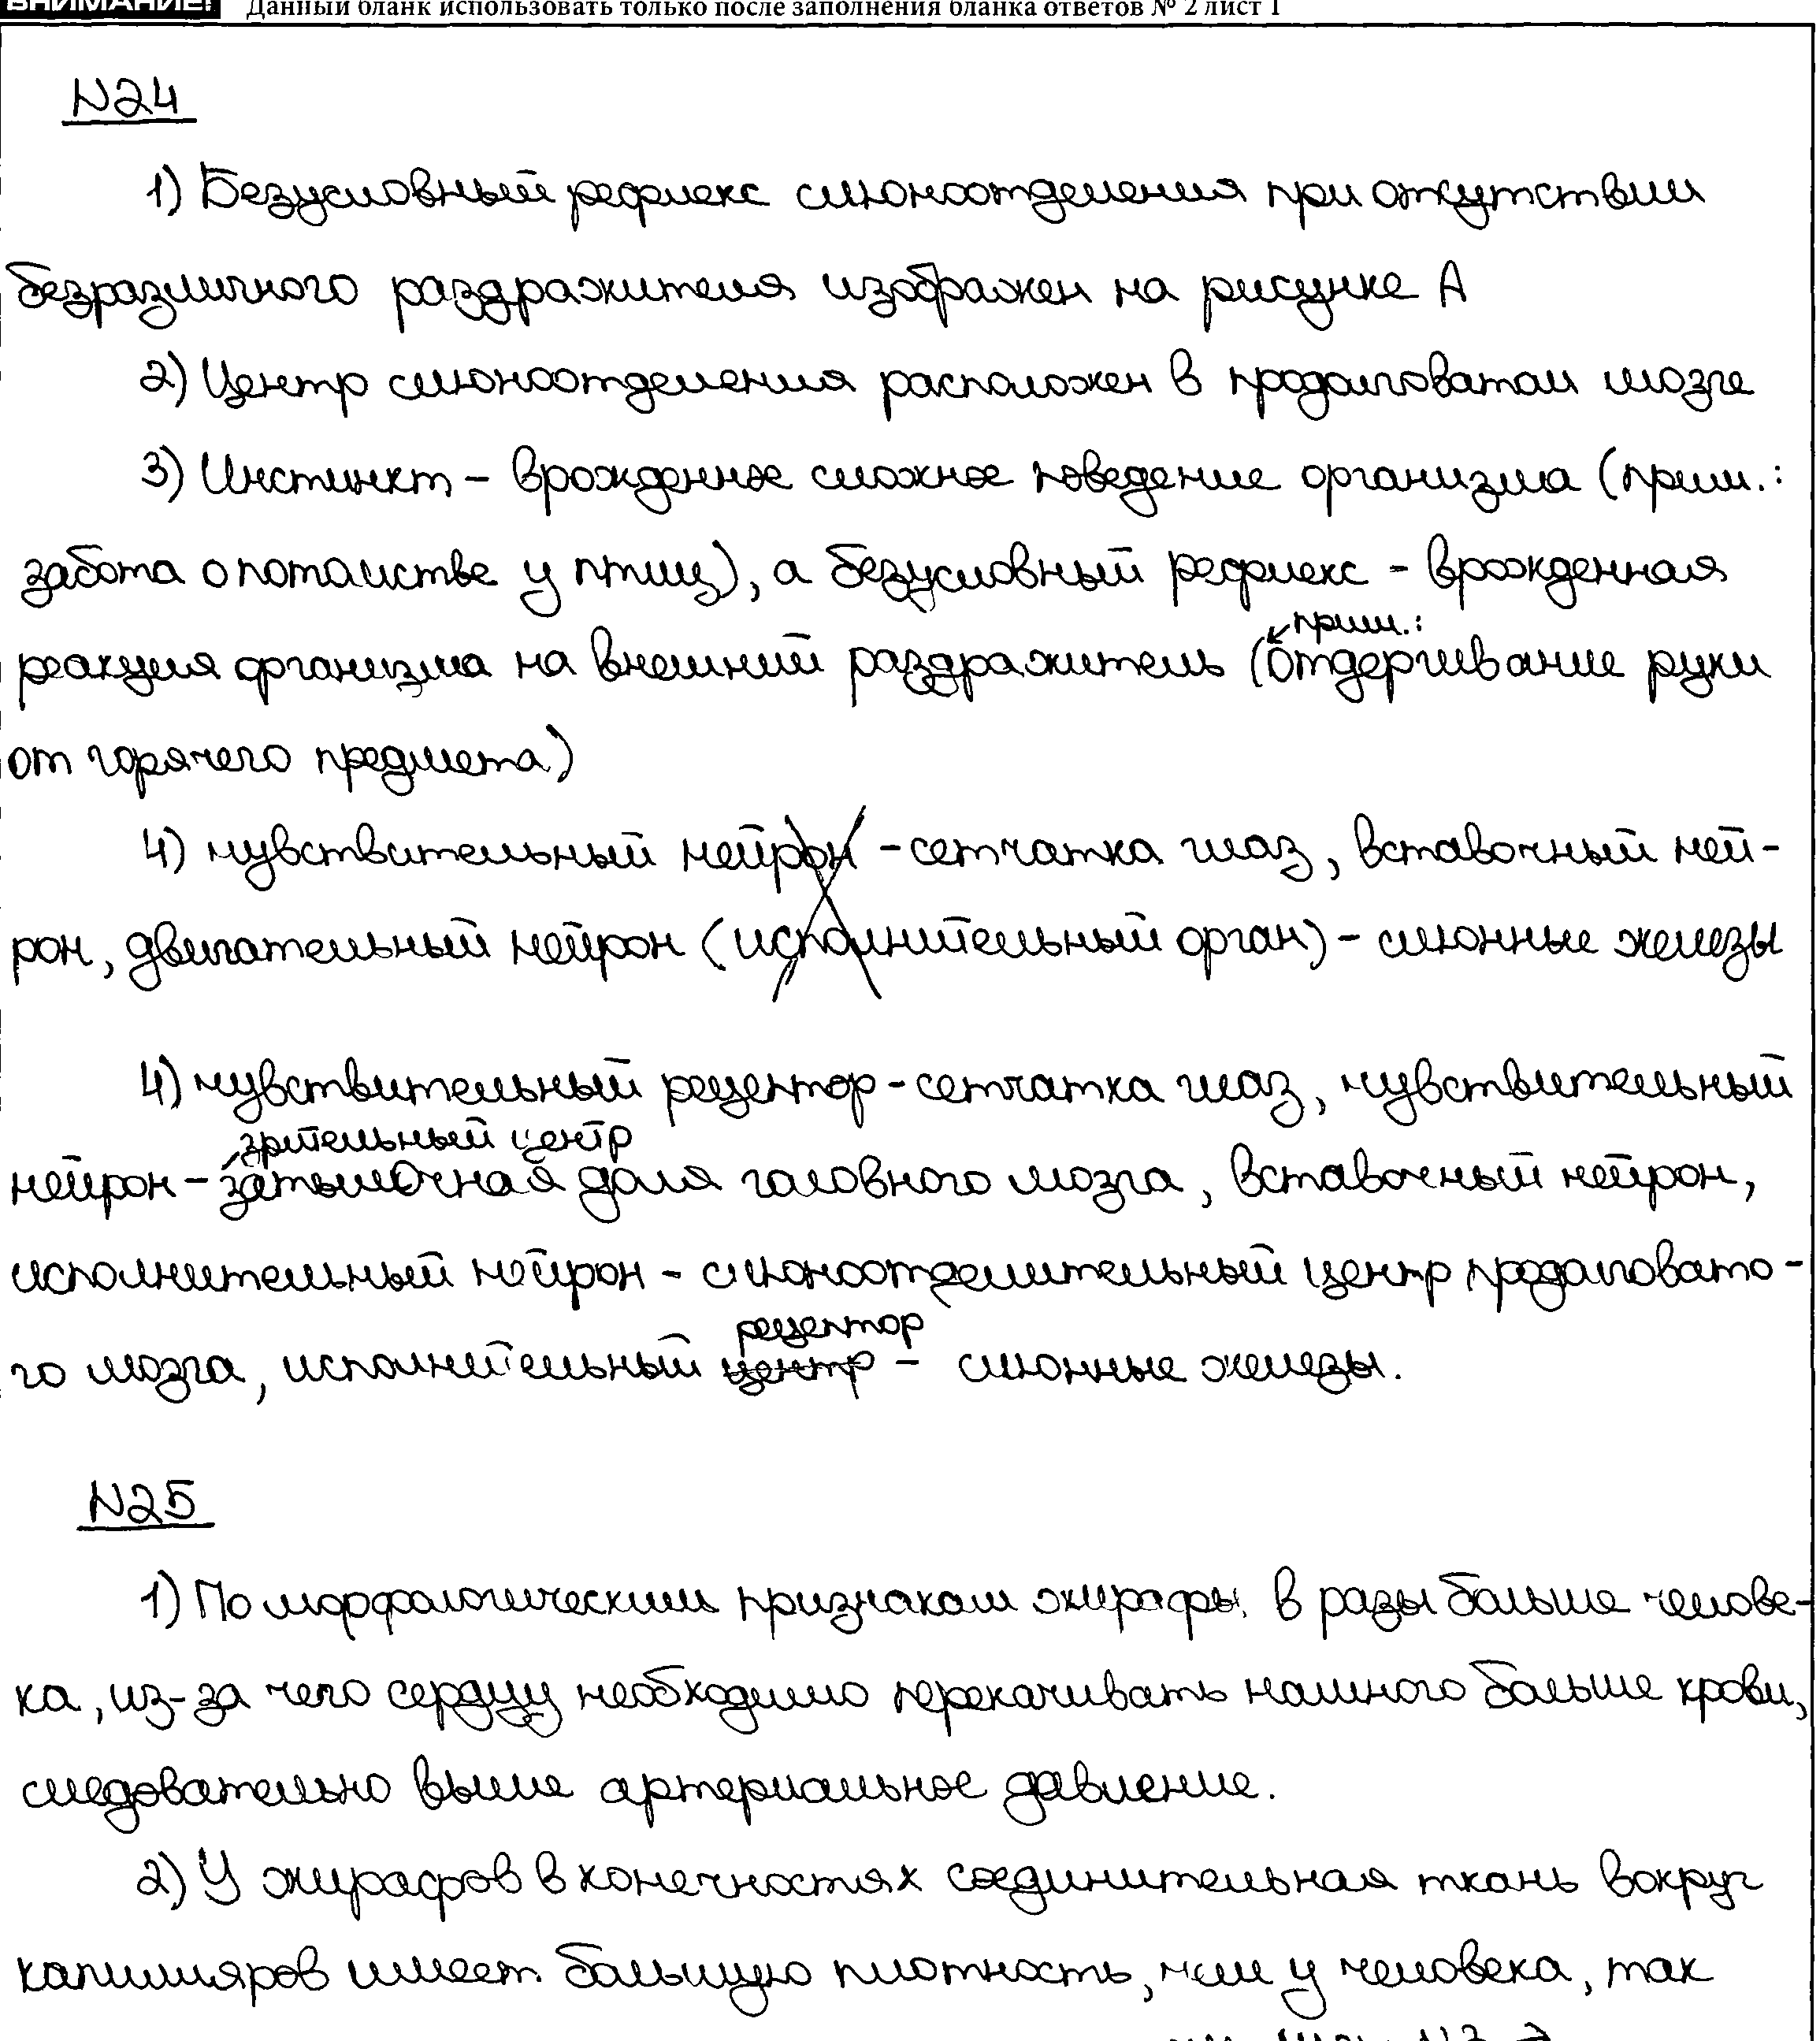 ВНИМАНИЕ! Данный бланк использовать только после заполнения бланка ответов № 2 лист 1
N24
1) Безусловный рефлекс слюноотделения при отсутствии
безразличного раздражителя изображен на рисунке А
2) Центр слюноотделения расположен в продолговатом мозге
3) Инстинкт – врожденное сложное поведение организма (прим.:
забота о потомстве у птиц), а безусловный рефлекс – врожденная
прим.:
реакция организма на внешний раздражитель (отдергивание руки
от горячего предмета)
4) чувствительный нейрон – сетчатка глаз, вставочный ней-
рон, двигательный нейрон (исполнительный орган) – слюнные железы
4) чувствительный рецептор – сетчатка глаз, чувствительный
зрительный центр
нейрон – затылочная доля головного мозга, вставочный нейрон,
исполнительный нейрон – слюноотделительный центр продолговато-
рецептор
го мозга, исполнительный центр – слюнные железы.
N25
1) По морфологическим признакам жирафы в разы больше челове-
ка, из-за чего сердцу необходимо перекачивать намного больше крови,
следовательно выше артериальное давление.
2) У жирафов в конечностях соединительная ткань вокруг
капилляров имеет большую плотность, чем у человека, так